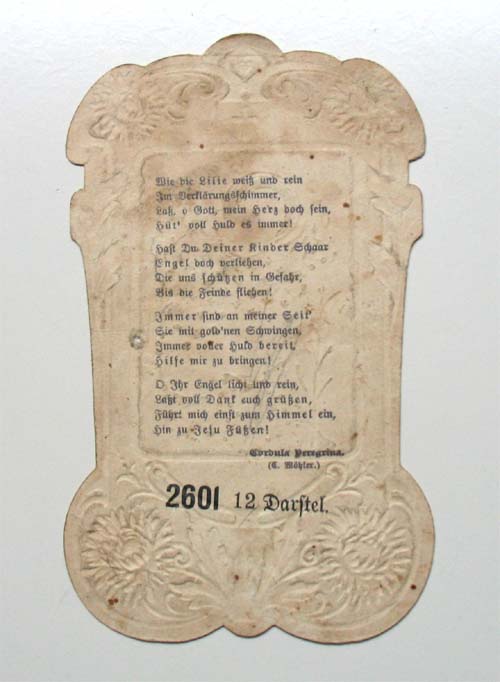 Wie die Lilie weiß und rein
Im Verklärungsschimmer,
Laß, o Gott, mein Herz doch sein,
Hüt' voll Huld es immer!
Hast Du Deiner Kinder Schaar
Engel doch verliehen,
Die uns schützen in Gefahr,
Bis die Feinde fliehen!
Immer sind an meiner Seit'
Sie mit gold'nen Schwingen,
Immer voller Huld bereit,
Hilfe mir zu bringen!
O Ihr Engel licht und rein,
Laßt voll Dank euch grüßen,
Führt mich einst zum Himmel ein,
Hin zu Jesu Füßen!
Cordula Peregrina.
(C. Wöhler.)
2601 12 Darstel.